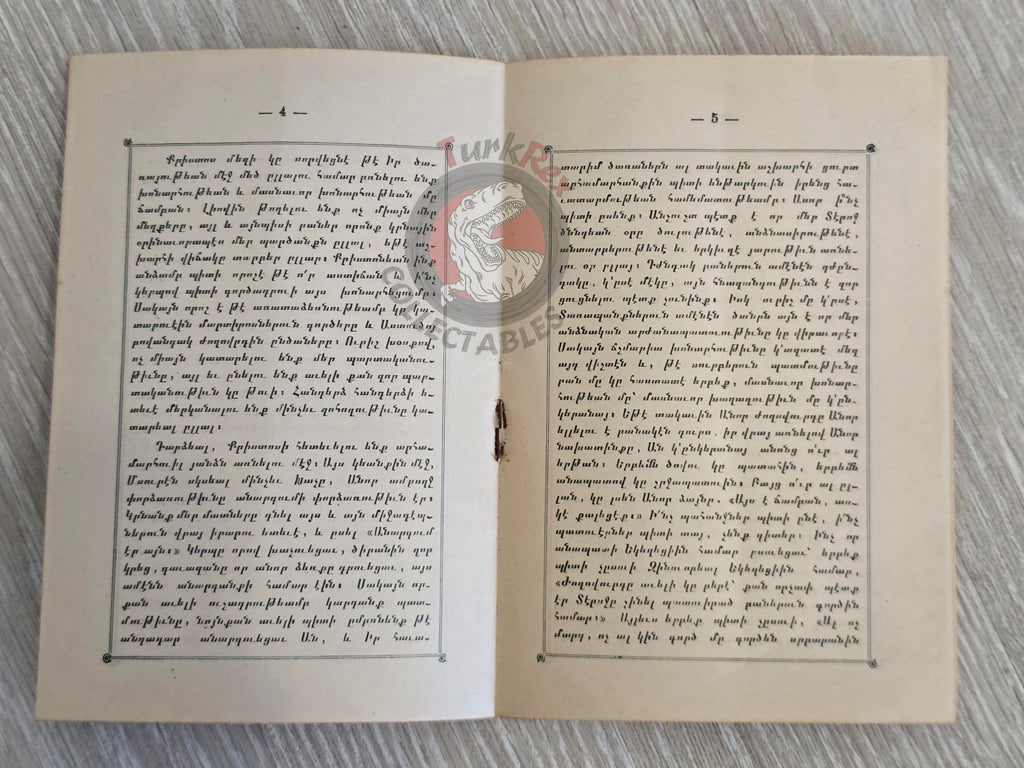 — 4 —
Քրիստոս մեզի կը սորվեցնէ թէ Իր ծա-
ռայութեան մէջ մեծ ըլլալու համար բռնելու ենք
խոնարհութեան և մասնաւոր խոնարհութեան մը
ճամբան։ Լիովին թողելու ենք ոչ միայն մեր
մեղքերը, այլ և այնպիսի բաներ որոնք կրնային
օրինաւորապէս մեր պարծանքն ըլլալ, եթէ աշ-
խարհի վիճակը տարբեր ըլլար։ Քրիստոնեան ինք
անձամբ պիտի որոշէ թէ ո՛ր աստիճան և ի՛նչ
կերպով պիտի գործադրուի այս խոնարհեցումը։
Սակայն որոշ է թէ առատաձեռնութեամբ կը կա-
տարուէին մարտիրոսներուն գործերը և Աստուծոյ
բովանդակ ժողովրդին ընծաները։ Ուրիշ խօսքով,
ոչ միայն կատարելու ենք մեր պարտականու-
թիւնը, այլ եւ ընելու ենք աւելի քան զոր պար-
տականութիւն կը թուի։ Հանդերձ հանդերձի ե-
տեւէ մերկանալու ենք մինչեւ զոհողութիւնը կա-
տարեալ ըլլայ։
Դարձեալ, Քրիստոսի հետեւելու ենք արհա-
մարհուիլ յանձն առնելու մէջ։ Այս կեանքին մէջ,
Մսուրէն սկսեալ մինչեւ Խաչը, Անոր ամբողջ
փորձառութիւնը անարգումի փորձառութիւն էր։
Կրնանք մեր մատները դնել այս և այն միջադէպ-
ներուն վրայ իրարու ետեւէ, և ըսել «Անարգում
էր այն։» Կերպը որով խաչուեցաւ, ծիրանին զոր
կրեց, գաւազանը որ անոր ձեռքը դրուեցաւ, այս
ամէնն անարգանքի համար էին։ Սակայն որ-
քան աւելի ուշադրութեամբ կարդանք պատ-
մութիւնը, նոյնքան աւելի պիտի ըմբռնենք թէ
անդադար անարգուեցաւ Ան, և Իր հաւա-
— 5 —
տարիմ ծառաներն ալ տակաւին աշխարհի ցուրտ
արհամարհանքին պիտի ենթարկուին իրենց հա-
ւատարմութեան համեմատութեամբ։ Ասոր ի՛նչ
պիտի ըսենք։ Անշուշտ պէտք է որ մեր Տէրոջ
ծննդեան օրը ծուլութենէ, անձնասիրութենէ,
անտարբերութենէ եւ երկիւղէ յարութիւն առնե-
լու օր ըլլայ։ Դժնդակ բաներուն ամէնէն դժըն-
դակը, կ՚ըսէ մէկը, այն հնազանդութիւնն է զոր
ցուցնելու պէտք չունինք։ Իսկ ուրիշ մը կ՚ըսէ,
Տառապանքներուն ամէնէն ծանրն այն է որ մեր
անձնական արժանապատուութիւնը կը վիրաւորէ։
Սակայն ճշմարիտ խոնարհութիւնը կ՚ազատէ մեզ
այդ վիշտէն և, թէ սուրբերուն պատմութիւնը
բան մը կը հաստատէ երբեք, մասնաւոր խոնար-
հութեան մը՝ մասնաւոր խաղաղութիւն մը կ՚ըն-
կերանայ։ Եթէ տակաւին Անոր ժողովուրդը Անոր
ելլելու է բանակէն դուրս, իր վրայ առնելով Անոր
նախատինքը, Ան կ՚ընկերանայ անոնց ո՛ւր ալ
երթան։ Երբեմն ծովու կը պատահին, երբեմն
անապատով կը շրջապատուին։ Բայց ո՛ւր ալ ըլ-
լան, կը լսեն Անոր ձայնը, «Այս է ճամբան, աս-
կէ քալեցէք»։ Ի՛նչ պահանջներ պիտի ընէ, ի՛նչ
պատուէրներ պիտի տայ, չենք գիտեր։ Ինչ որ
անապատի Եկեղեցիին համար ըսուեցաւ՝ երբեք
պիտի չըսուի Զինուորեալ Եկեղեցիին համար,
«Ժողովուրդը աւելի կը բերէ՝ քան որչափ պէտք
էր Տէրոջը շինել պատուիրած բաներուն գործին
համար։» Այլեւս երբեք պիտի չըսուի, «Ալ ոչ
մարդ, ոչ ալ կին գործ մը գործեն սրբարանին
TurkRex
COLLECTABLES